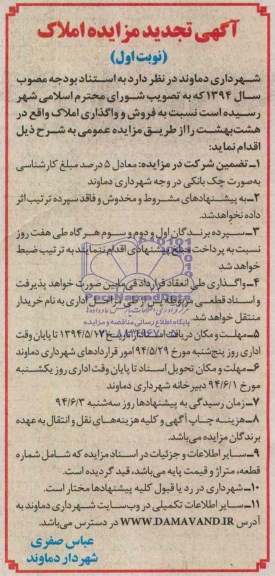 آگهی تجدید مزایده املاک
(نوبت اول)
شهرداری دماوند در نظر دارد به استناد بودجه مصوب
سال ۱۳۹۴ که به تصویب شورای محترم اسلامی شهر
رسیده است نسبت به فروش و واگذاری املاک واقع در
هشت‌بهشت را از طریق مزایده عمومی به شرح ذیل
اقدام نماید:
۱ـ تضمین شرکت در مزایده: معادل ۵ درصد مبلغ کارشناسی
به‌صورت چک بانکی در وجه شهرداری دماوند
۲ـ به پیشنهادهای مشروط و مخدوش و فاقد سپرده ترتیب اثر
داده نخواهدشد.
۳ـ سپرده برندگان اول و دوم و سوم هر گاه طی هفت روز
نسبت به پرداخت مبلغ پیشنهادی اقدام ننمایند به ترتیب ضبط
خواهد شد
۴ـ واگذاری طی انعقاد قرارداد فی‌مابین صورت خواهد پذیرفت
و اسناد قطعی مربوطه پس از طی مراحل اداری به نام خریدار
منتقل خواهد شد.
۵ـ مهلت و مکان دریافت اسناد: از تاریخ ۱۳۹۴/۵/۱۷ تا پایان وقت
اداری روز پنج‌شنبه مورخ ۹۴/۵/۲۹ امور قراردادهای شهرداری دماوند
۶ـ مهلت و مکان تحویل اسناد تا پایان وقت اداری روز یکشنبه
مورخ ۹۴/۶/۱ دبیرخانه شهرداری دماوند
۷ـ زمان رسیدگی به پیشنهادها روز سه‌شنبه ۹۴/۶/۳
۸ـ هزینه چاپ آگهی و کلیه هزینه‌های نقل و انتقال به عهده
برندگان مزایده می‌باشد.
۹ـ سایر اطلاعات و جزئیات در اسناد مزایده که شامل شماره
قطعه، متراژ و قیمت پایه می‌باشد، قید گردیده است.
۱۰ـ شهرداری در رد یا قبول کلیه پیشنهادها مختار است.
۱۱ـ سایر اطلاعات تکمیلی در وب‌سایت شهرداری دماوند به
آدرس WWW.DAMAVAND.IR در دسترس می‌باشد.
عباس صفری
شهردار دماوند